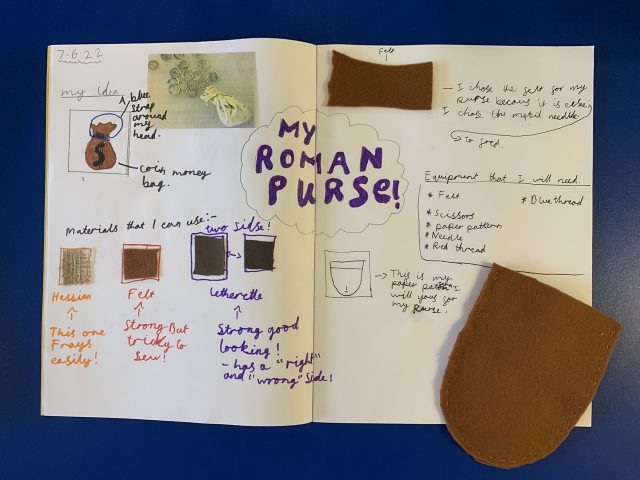 7.6.22
my idea
blue
strap
around
my
head.
$
coin money
bag.
Materials that I can use:-
two sidse!
Hessian
This one
Frays
easily!
Felt
Strong But
tricky to
sew!
Letherette
Strong good
looking!
- has a "right"
and "wrong" side!
MY
ROMAN
PURSE!
Felt
- I chose the felt for my
purse becaus it is
I chose the needle
to
Equipment that I will need.
* Felt
* Scissors
* paper pattern
* Needle
* Red thread
* Blue thread
This is my
paper
will for
my Purse.